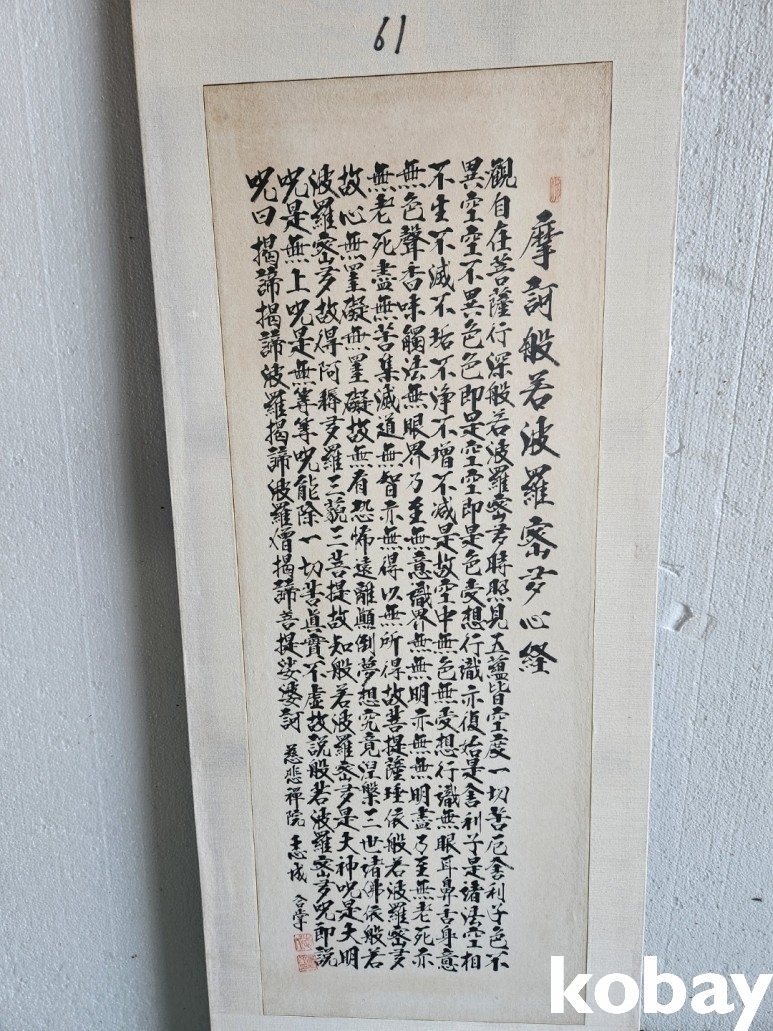 61
摩訶般若波羅蜜多心経
觀自在菩薩行深般若波羅蜜多時照見五蘊皆空度一切苦厄舍利子色不
異空空不異色色即是空空即是色受想行識亦復如是舍利子是諸法空相
不生不滅不垢不淨不增不減是故空中無色無受想行識無眼耳鼻舌身意
無色聲香味觸法無眼界乃至無意識界無無明亦無無明盡乃至無老死亦
無老死盡無苦集滅道無智亦無得以無所得故菩提薩埵依般若波羅蜜多
故心無罣礙無罣礙故無有恐怖遠離顛倒夢想究竟涅槃三世諸佛依般若
波羅蜜多故得阿耨多羅三藐三菩提故知般若波羅蜜多是大神呪是大明
呪是無上呪是無等等呪能除一切苦真實不虛故說般若波羅蜜多呪即說
呪曰揭諦揭諦波羅揭諦波羅僧揭諦菩提娑婆訶 慈悲禪院 合掌
kobay